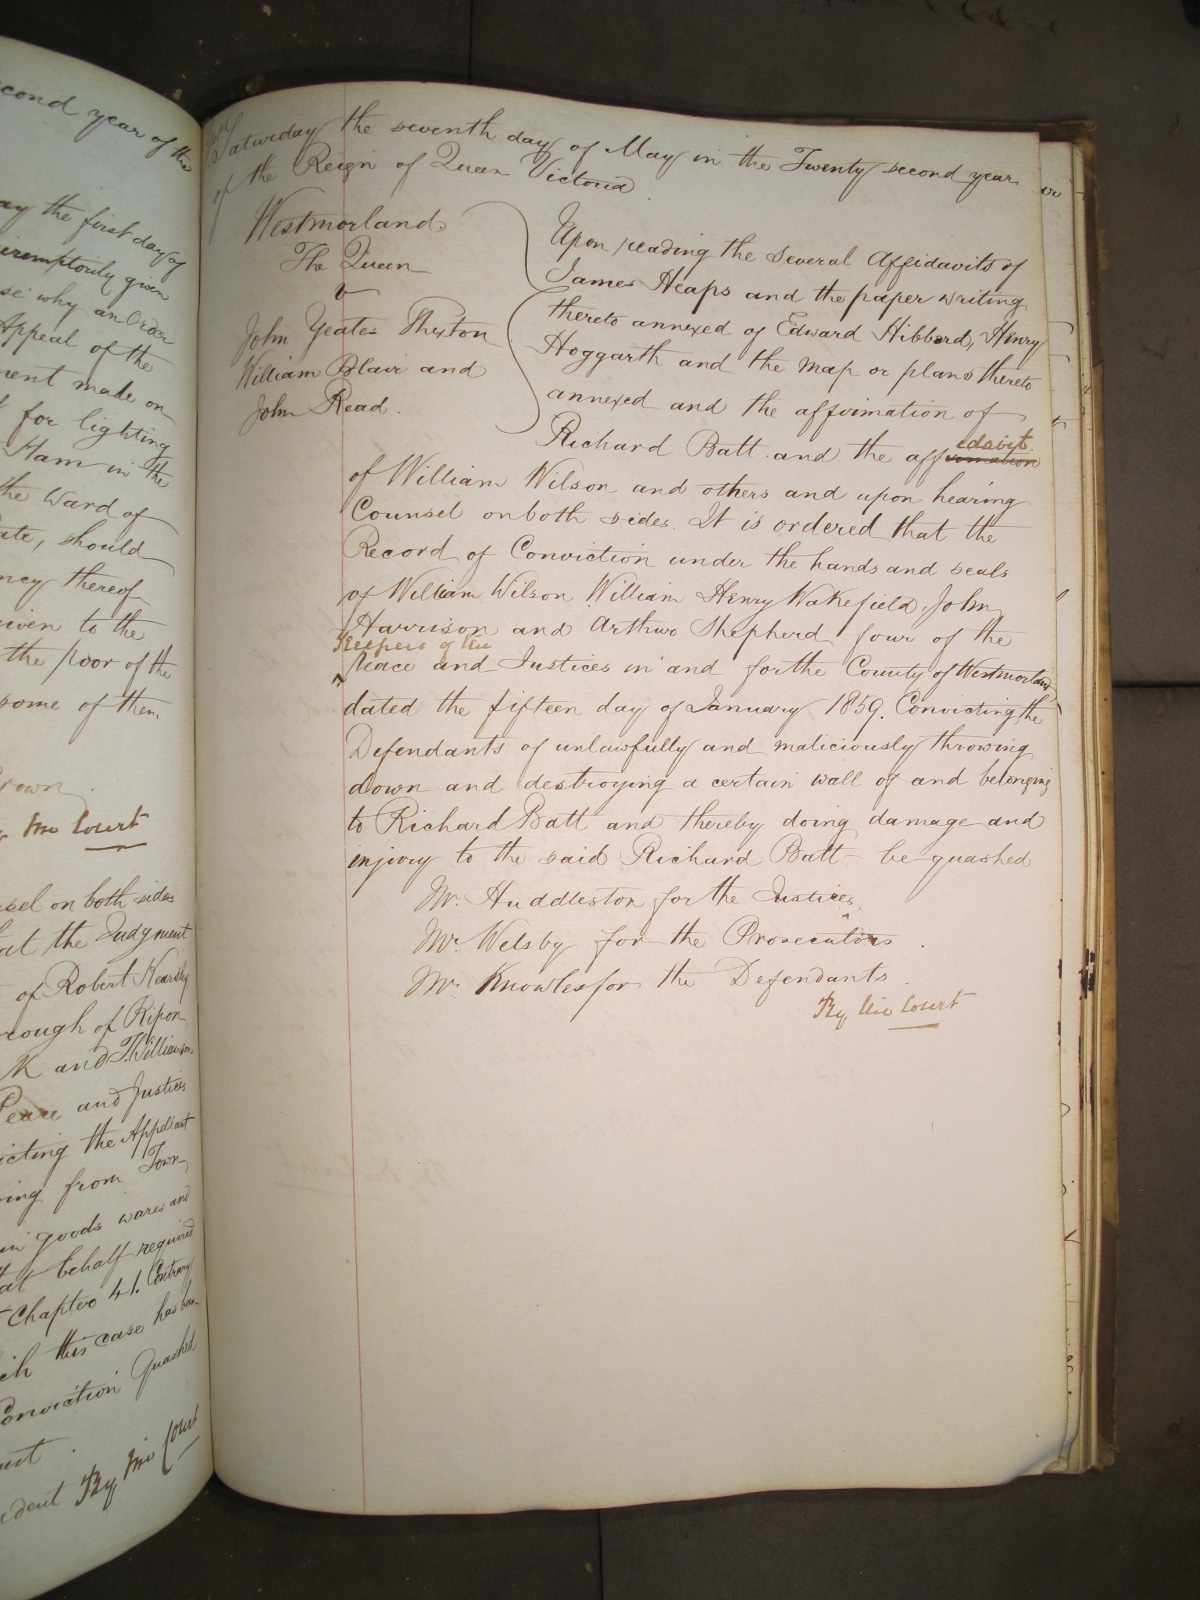 cond year of the
ay the first day of
eremptorily given
se why an Order
Appeal of the
ment made on
for lighting
Ham in the
the Ward of
ate, should
ncy thereof
iven to the
the poor of the
some of them
rown
the Court
sel on both sides
at the Judgment
of Robert Kearsley
rough of Ripon
K and T. Williamson
Peace and Justices
icting the Appellant
ing from Town
in goods wares and
at behalf required
Chapter 41. Contrary
ich this case has been
Conviction Quashed
urt
ndent By the Court
Saturday the seventh day of May in the Twenty second year
of the Reign of Queen Victoria
Westmorland
The Queen
v
John Yeates Thexton
William Blair and
John Read.
Upon reading the several Affidavits of
James Heaps and the paper writing
thereto annexed of Edward Hibberd, Henry
Hoggarth and the map or plans thereto
annexed and the affirmation of
Richard Batt and the affirmation edavit
of William Wilson and others and upon hearing
Counsel on both sides. It is ordered that the
Record of Conviction under the hands and seals
of William Wilson William Henry Wakefield, John
Harrison and Arthur Shepherd four of the
Keepers of the
Peace and Justices in and for the County of Westmorland
dated the fifteen day of January 1859. Convicting the
Defendants of unlawfully and maliciously throwing
down and destroying a certain wall of and belonging
to Richard Batt and thereby doing damage and
injury to the said Richard Batt be quashed
Mr. Huddleston for the Justices
Mr. Welsby for the Prosecutors.
Mr. Knowles for the Defendants.
By the Court